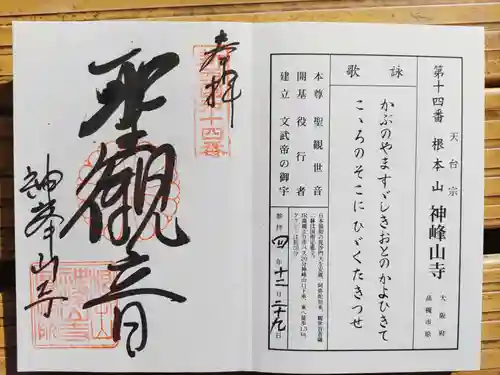 第十四番
天台宗
根本山 神峰山寺
大阪府
高槻市原
詠歌
かぶのやますゞしきおとのかよひきて
こゝろのそこにひゞくたきつせ
本尊 聖觀世音
開基 役行者
建立 文武帝の御宇
参拝 四年十二月二十九日
奉拝
第十四番
聖觀音
神峯山寺